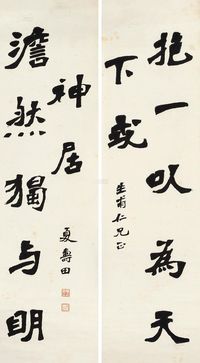 抱一以為天
下式
坐甫仁兄正
澹然獨与明
神居
夏壽田